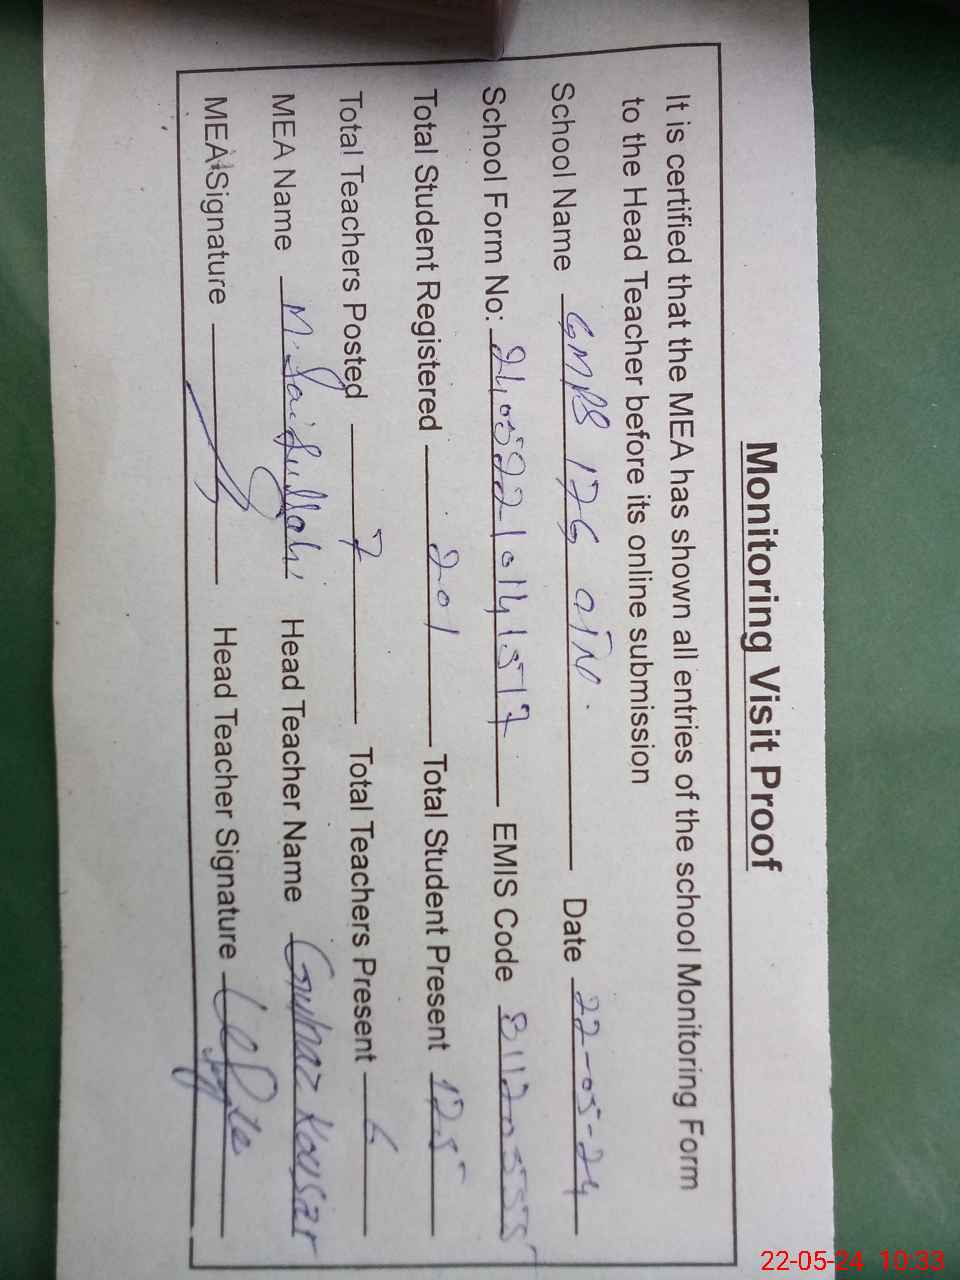 Monitoring Visit Proof
It is certified that the MEA has shown all entries of the school Monitoring Form
to the Head Teacher before its online submission
School Name GMPS 126 Date 22-05-24
School Form No: EMIS Code
Total Student Registered 201 Total Student Present 125
Total Teachers Posted 7 Total Teachers Present 6
MEA Name M. Saifullah Head Teacher Name Gulnaz Kousar
MEA Signature Head Teacher Signature
22-05-24 10:33